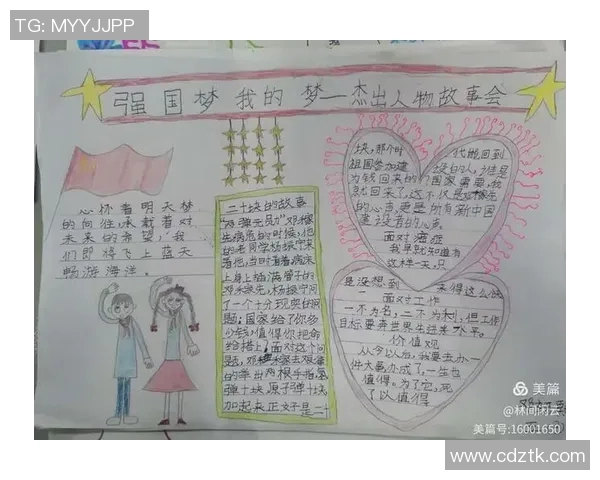 TG: MYYJJPP
强国梦我的梦—杰出人物故事会
心怀着明天梦
的向往,承载着对
未来的希望,我
们即将飞上蓝天
畅游海洋。
二十块的故事
"两弹元勋"邓稼
先病危的时候,他
的老同学杨振宁来
看他,当时看着病床
上身上插满管子的
邓稼先,杨振宁问
了一个十分现实的问
题:国家给了你多
少钱,值得你把命
给搭上,面对这个问
题,邓稼先
的举出两根手指氢
弹十块,原子弹十块
加起来正好是二十
块,那个时代能回到
祖国参加建设的人,谁是
为钱回来的?国家需要,我
就回来了,这不仅是邓稼先
的心声,更是所有新中国
建设者的心声
面对海涯
我早就知道有
这样一天,只
是没想到来得这么快
面对工作
一不为名,二不为利,但工作
目标要奔世界先进水平。
价值观
从今以后,我要去办一
件大事,办成了,一生也
值得。为了它,死
了以值得
美篇
@林间闲云
美篇号:16001650
www.cdztk.com